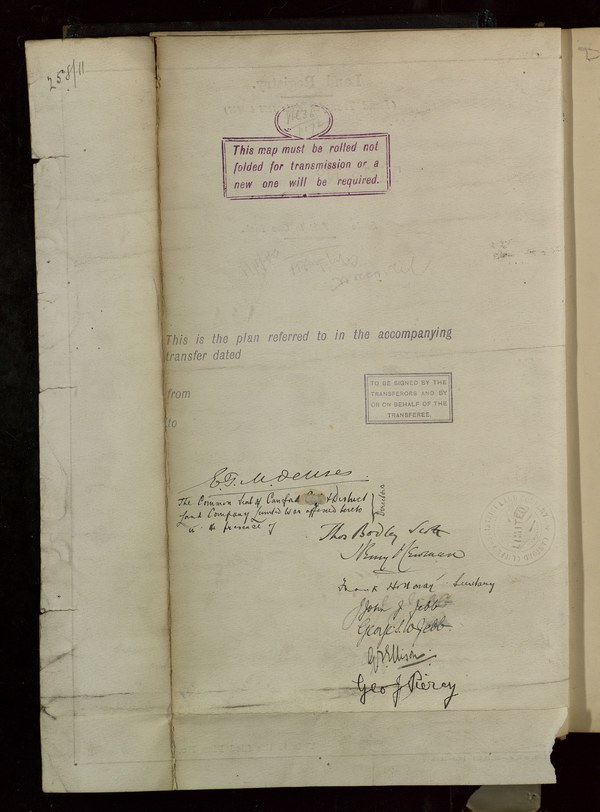 258/11
This map must be rolled not
folded for transmission or a
new one will be required.
This is the plan referred to in the accompanying
transfer dated
from
to
TO BE SIGNED BY THE
TRANSFERORS AND BY
OR ON BEHALF OF THE
TRANSFEREE.
The Common Seal of & District
Land Company Limited was affixed hereto
in the presence of
Directors
Thos Bodley Scott
Henry Newman
Frank Holloway Secretary
John J Jebb
George Jebb
Ellison
Geo J Piercy
LIMITED